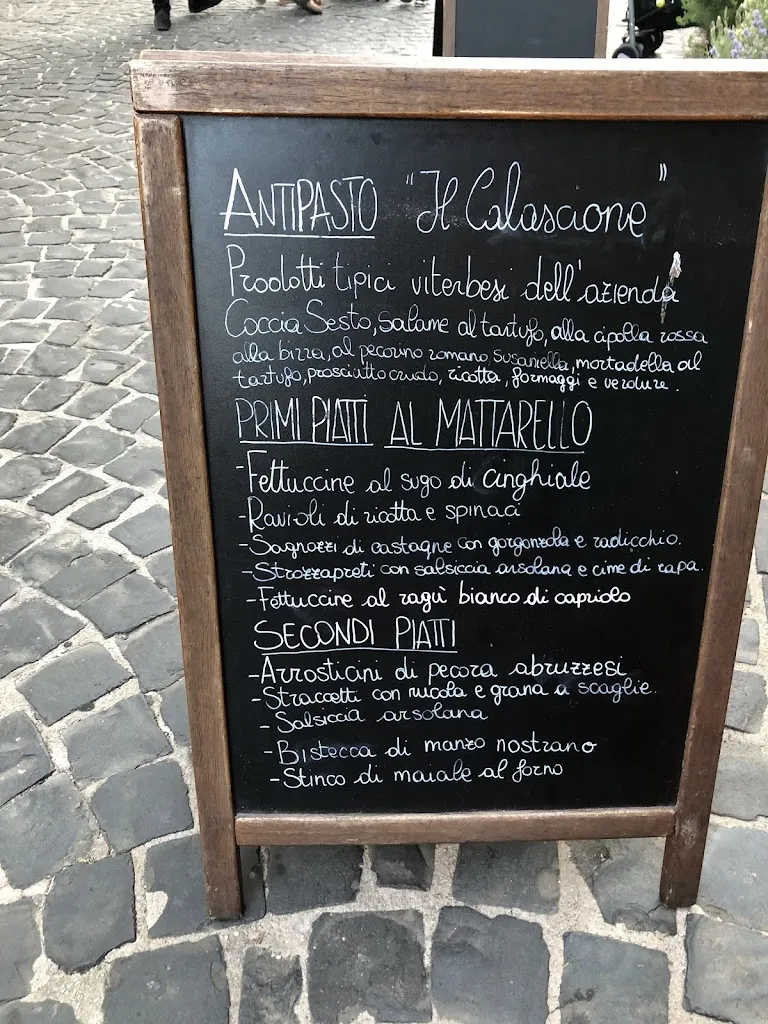 ANTIPASTO "Il Calascione"
Prodotti tipici viterbesi dell'azienda
Coccia Sesto, salame al tartufo, alla cipolla rossa
alla birra, al pecorino romano, susianella, mortadella al
tartufo, prosciutto crudo, ricotta, formaggi e verdure.
PRIMI PIATTI AL MATTARELLO
-Fettuccine al sugo di cinghiale
-Ravioli di ricotta e spinaci
-Sagnozzi di castagne con gorgonzola e radicchio.
-Strozzapreti con salsiccia arsolana e cime di rapa.
-Fettuccine al ragù bianco di capriolo
SECONDI PIATTI
-Arrosticini di pecora abruzzesi
-Straccetti con rucola e grana a scaglie.
-Salsiccia arsolana
-Bistecca di manzo nostrano
-Stinco di maiale al forno